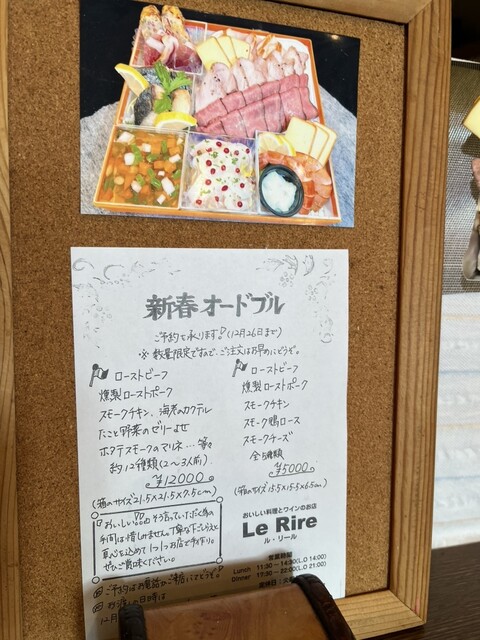 新春オードブル
ご予約を承ります!!(12月26日まで)
※数量限定ですので、ご注文はお早めにどうぞ。
ローストビーフ
燻製ローストポーク
スモークチキン、海老のカクテル
たこと野菜のゼリーよせ
ホタテスモークのマリネ…等々
約12種類(2〜3人前)
¥12000
(箱のサイズ21.5×21.5×7.5cm)
ローストビーフ
燻製ローストポーク
スモークチキン
スモーク鴨ロース
スモークチーズ
全5種類
¥5000
(箱のサイズ15.5×15.5×6.5cm)
"おいしい!!" そう言っていただく為の
手間は惜しみません。丁寧な下ごしらえと
真心を込めて1つ1つお店で手作り。
ぜひご賞味ください。
おいしい料理とワインのお店
Le Rire
ル・リール
営業時間
Lunch 11:30〜14:30(L.O 14:00)
Dinner 17:30〜22:00(L.O 21:00)
定休日:火
ご予約はお電話かご来店にてどうぞ。
お渡しの日時は
12月